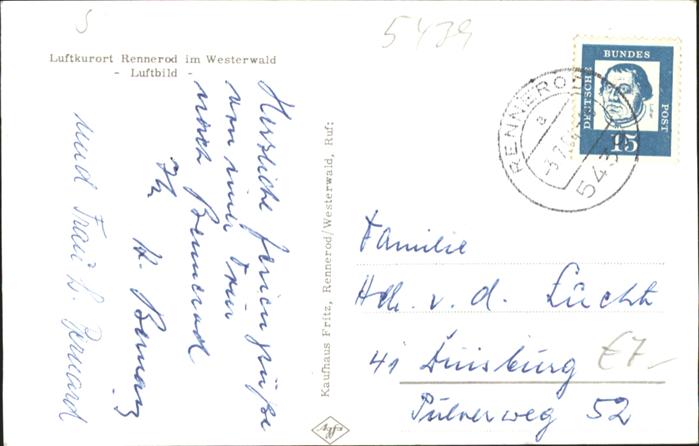 5439
Luftkurort Rennerod im Westerwald
- Luftbild -
Herzliche Feriengrüße
von einer Tour
nach Rennerod
Ihr H. Bernard
und Frau L. Bernard
Kaufhaus Fritz, Rennerod/Westerwald, Ruf:
DEUTSCHE
BUNDES
POST
15
RENNEROD
a
543
Familie
v. d. Lücht
41 Duisburg
Pulverweg 52
£7-